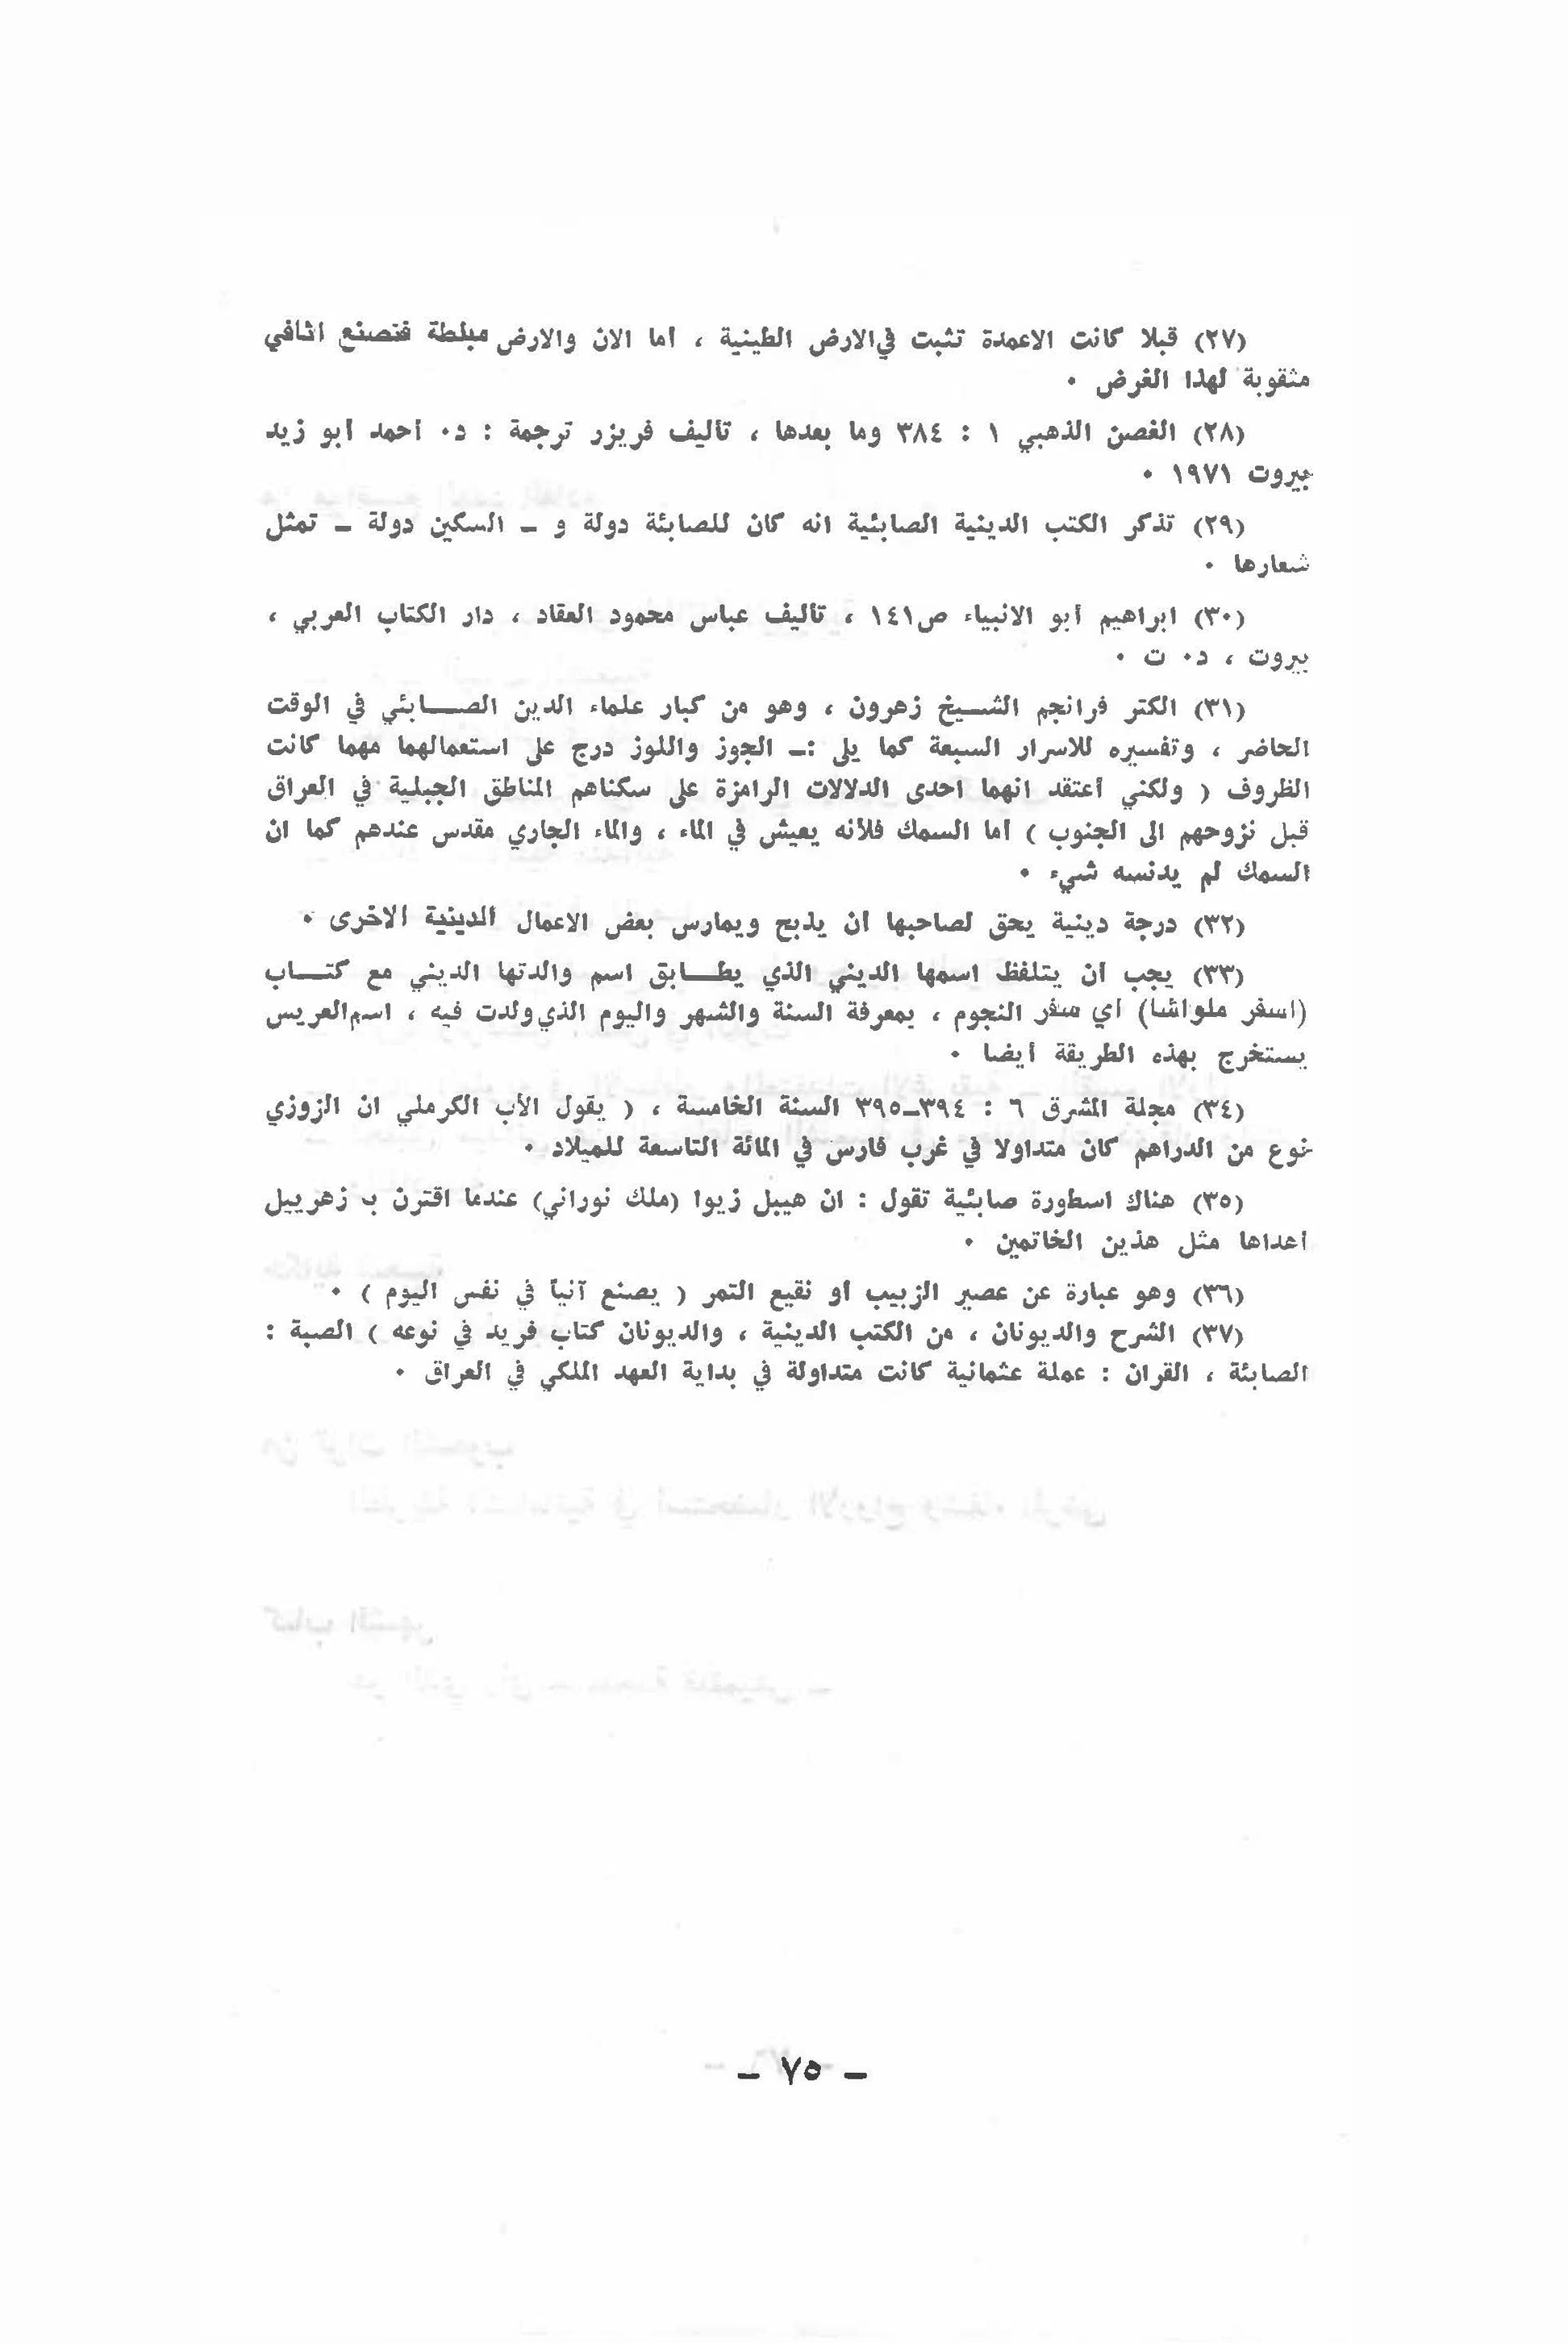 (٢٧) قبلا كانت الاعمدة تثبت في الارض الطينية ، اما الان والارض مبلطة فتصنع اثافي
مثقوبة لهذا الغرض ٠
(٢٨) الغصن الذهبي ١ : ٣٨٤ وما بعدها ، تأليف فريزر ترجمة : د٠ أحمد أبو زيد
بيروت ١٩٧١ ٠
(٢٩) تذكر الكتب الدينية الصابئية انه كان للصابئة دولة و ـ السكين دولة ـ تمثل
شعارها ٠
(٣٠) ابراهيم أبو الانبياء ص١٤١ ، تأليف عباس محمود العقاد ، دار الكتاب العربي ،
بيروت ، د٠ ت ٠
(٣١) الكتر فرانجم الشـيخ زهرون ، وهو من كبار علماء الدين الصــابئي في الوقت
الحاضر ، وتفسيره للاسرار السبعة كما يلي :ـ الجوز واللوز درج على استعمالهما مهما كانت
الظروف ( ولكني أعتقد انهما احدى الدلالات الرامزة على سكناهم المناطق الجبلية في العراق
قبل نزوحهم الى الجنوب ) أما السمك فلأنه يعيش في الماء ، والماء الجاري مقدس عندهم كما ان
السمك لم يدنسه شيء ٠
(٣٢) درجة دينية يحق لصاحبها ان يذبح ويمارس بعض الاعمال الدينية الاخرى ٠
(٣٣) يجب أن يتلفظ اسمها الديني الذي يطــابق اسم والدتها الديني مع كتــاب
(اسفر ملواشا) أي سفر النجوم ، بمعرفة السنة والشهر واليوم الذي ولدت فيه ، اسم العريس
يستخرج بهذه الطريقة أيضا ٠
(٣٤) مجلة المشرق ٦ : ٣٩٤ـ٣٩٥ السنة الخامسة ، ( يقول الأب الكرملي ان الزوزي
نوع من الدراهم كان متداولا في غرب فارس في المائة التاسعة للميلاد ٠
(٣٥) هناك اسطورة صابئية تقول : ان هيبل زيوا (ملك نوراني) عندما اقترن بـ زهرييل
اهداها مثل هذين الخاتمين ٠
(٣٦) وهو عبارة عن عصير الزبيب او نقيع التمر ( يصنع آنياً في نفس اليوم ) ٠
(٣٧) الشرح والديونان ، من الكتب الدينية ، والديونان كتاب فريد في نوعه ) الصبة :
الصابئة ، القران : عملة عثمانية كانت متداولة في بداية العهد الملكي في العراق ٠
ـ ٧٥ ـ